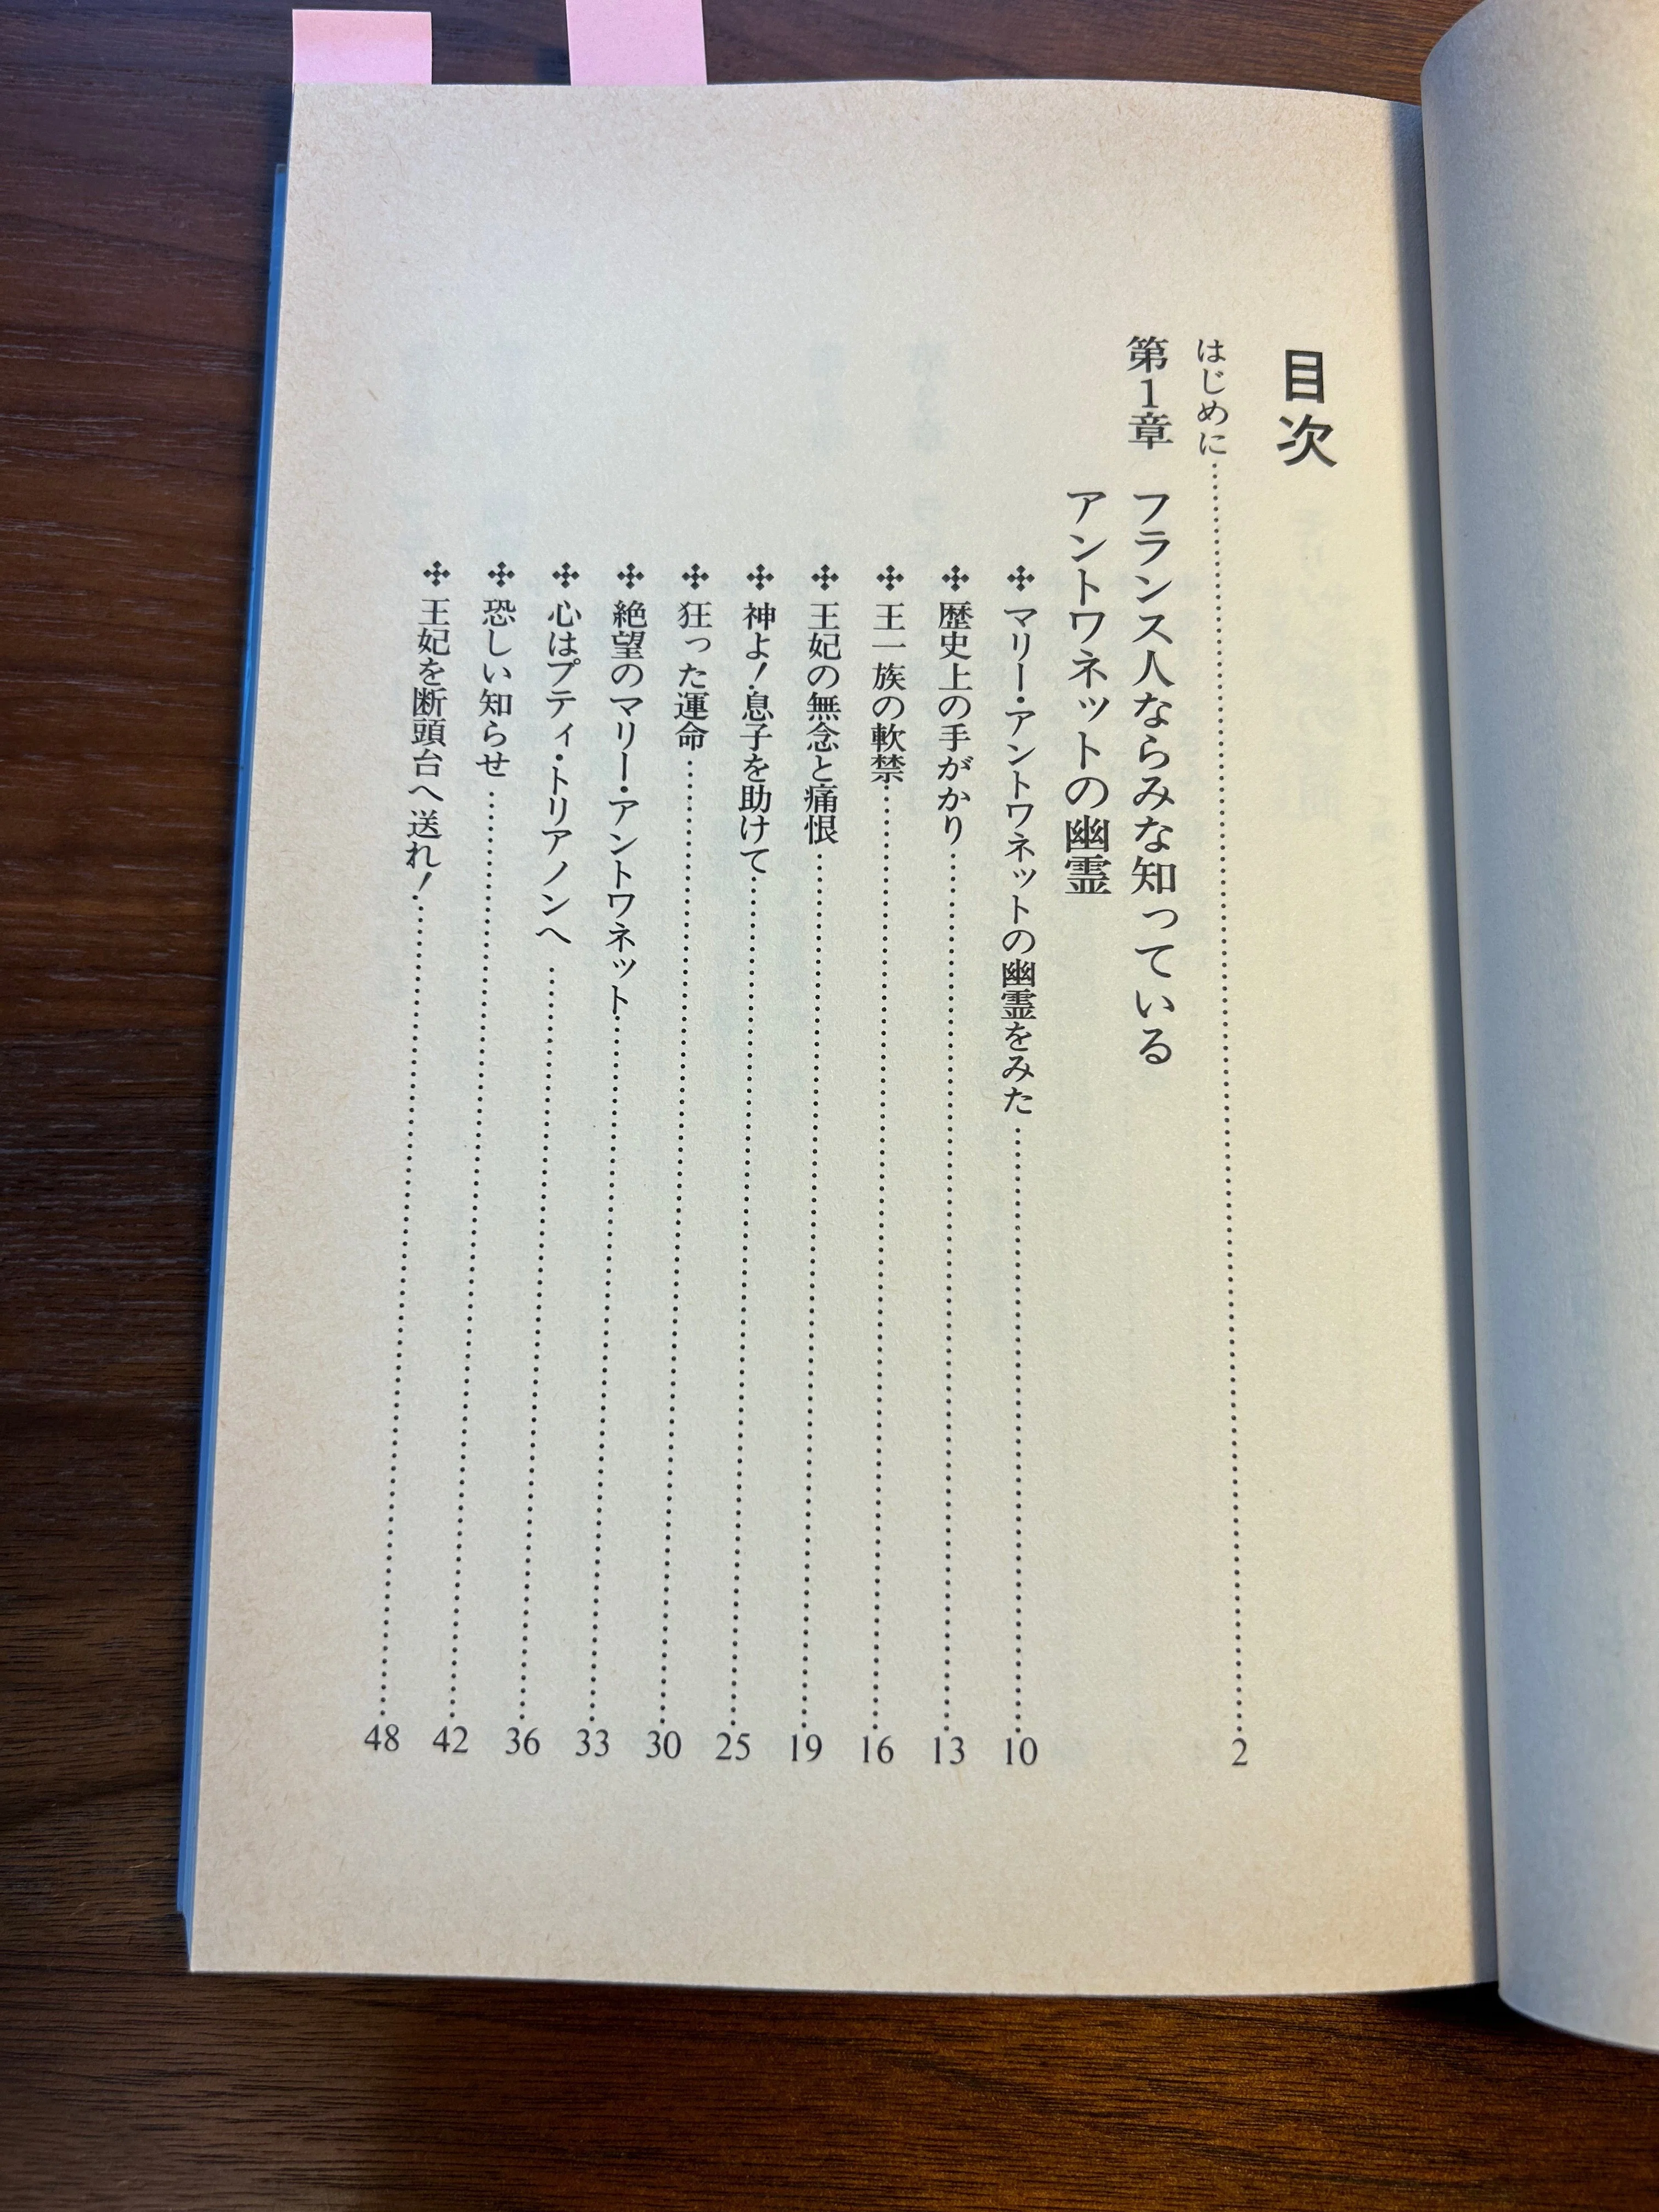 目次
はじめに……2
第1章 フランス人ならみな知っている
アントワネットの幽霊
✣ マリー・アントワネットの幽霊をみた……10
✣ 歴史上の手がかり……13
✣ 王一族の軟禁……16
✣ 王妃の無念と痛恨……19
✣ 神よ！息子を助けて……25
✣ 狂った運命……30
✣ 絶望のマリー・アントワネット……33
✣ 心はプティ・トリアノンへ……36
✣ 恐しい知らせ……42
✣ 王妃を断頭台へ送れ！……48